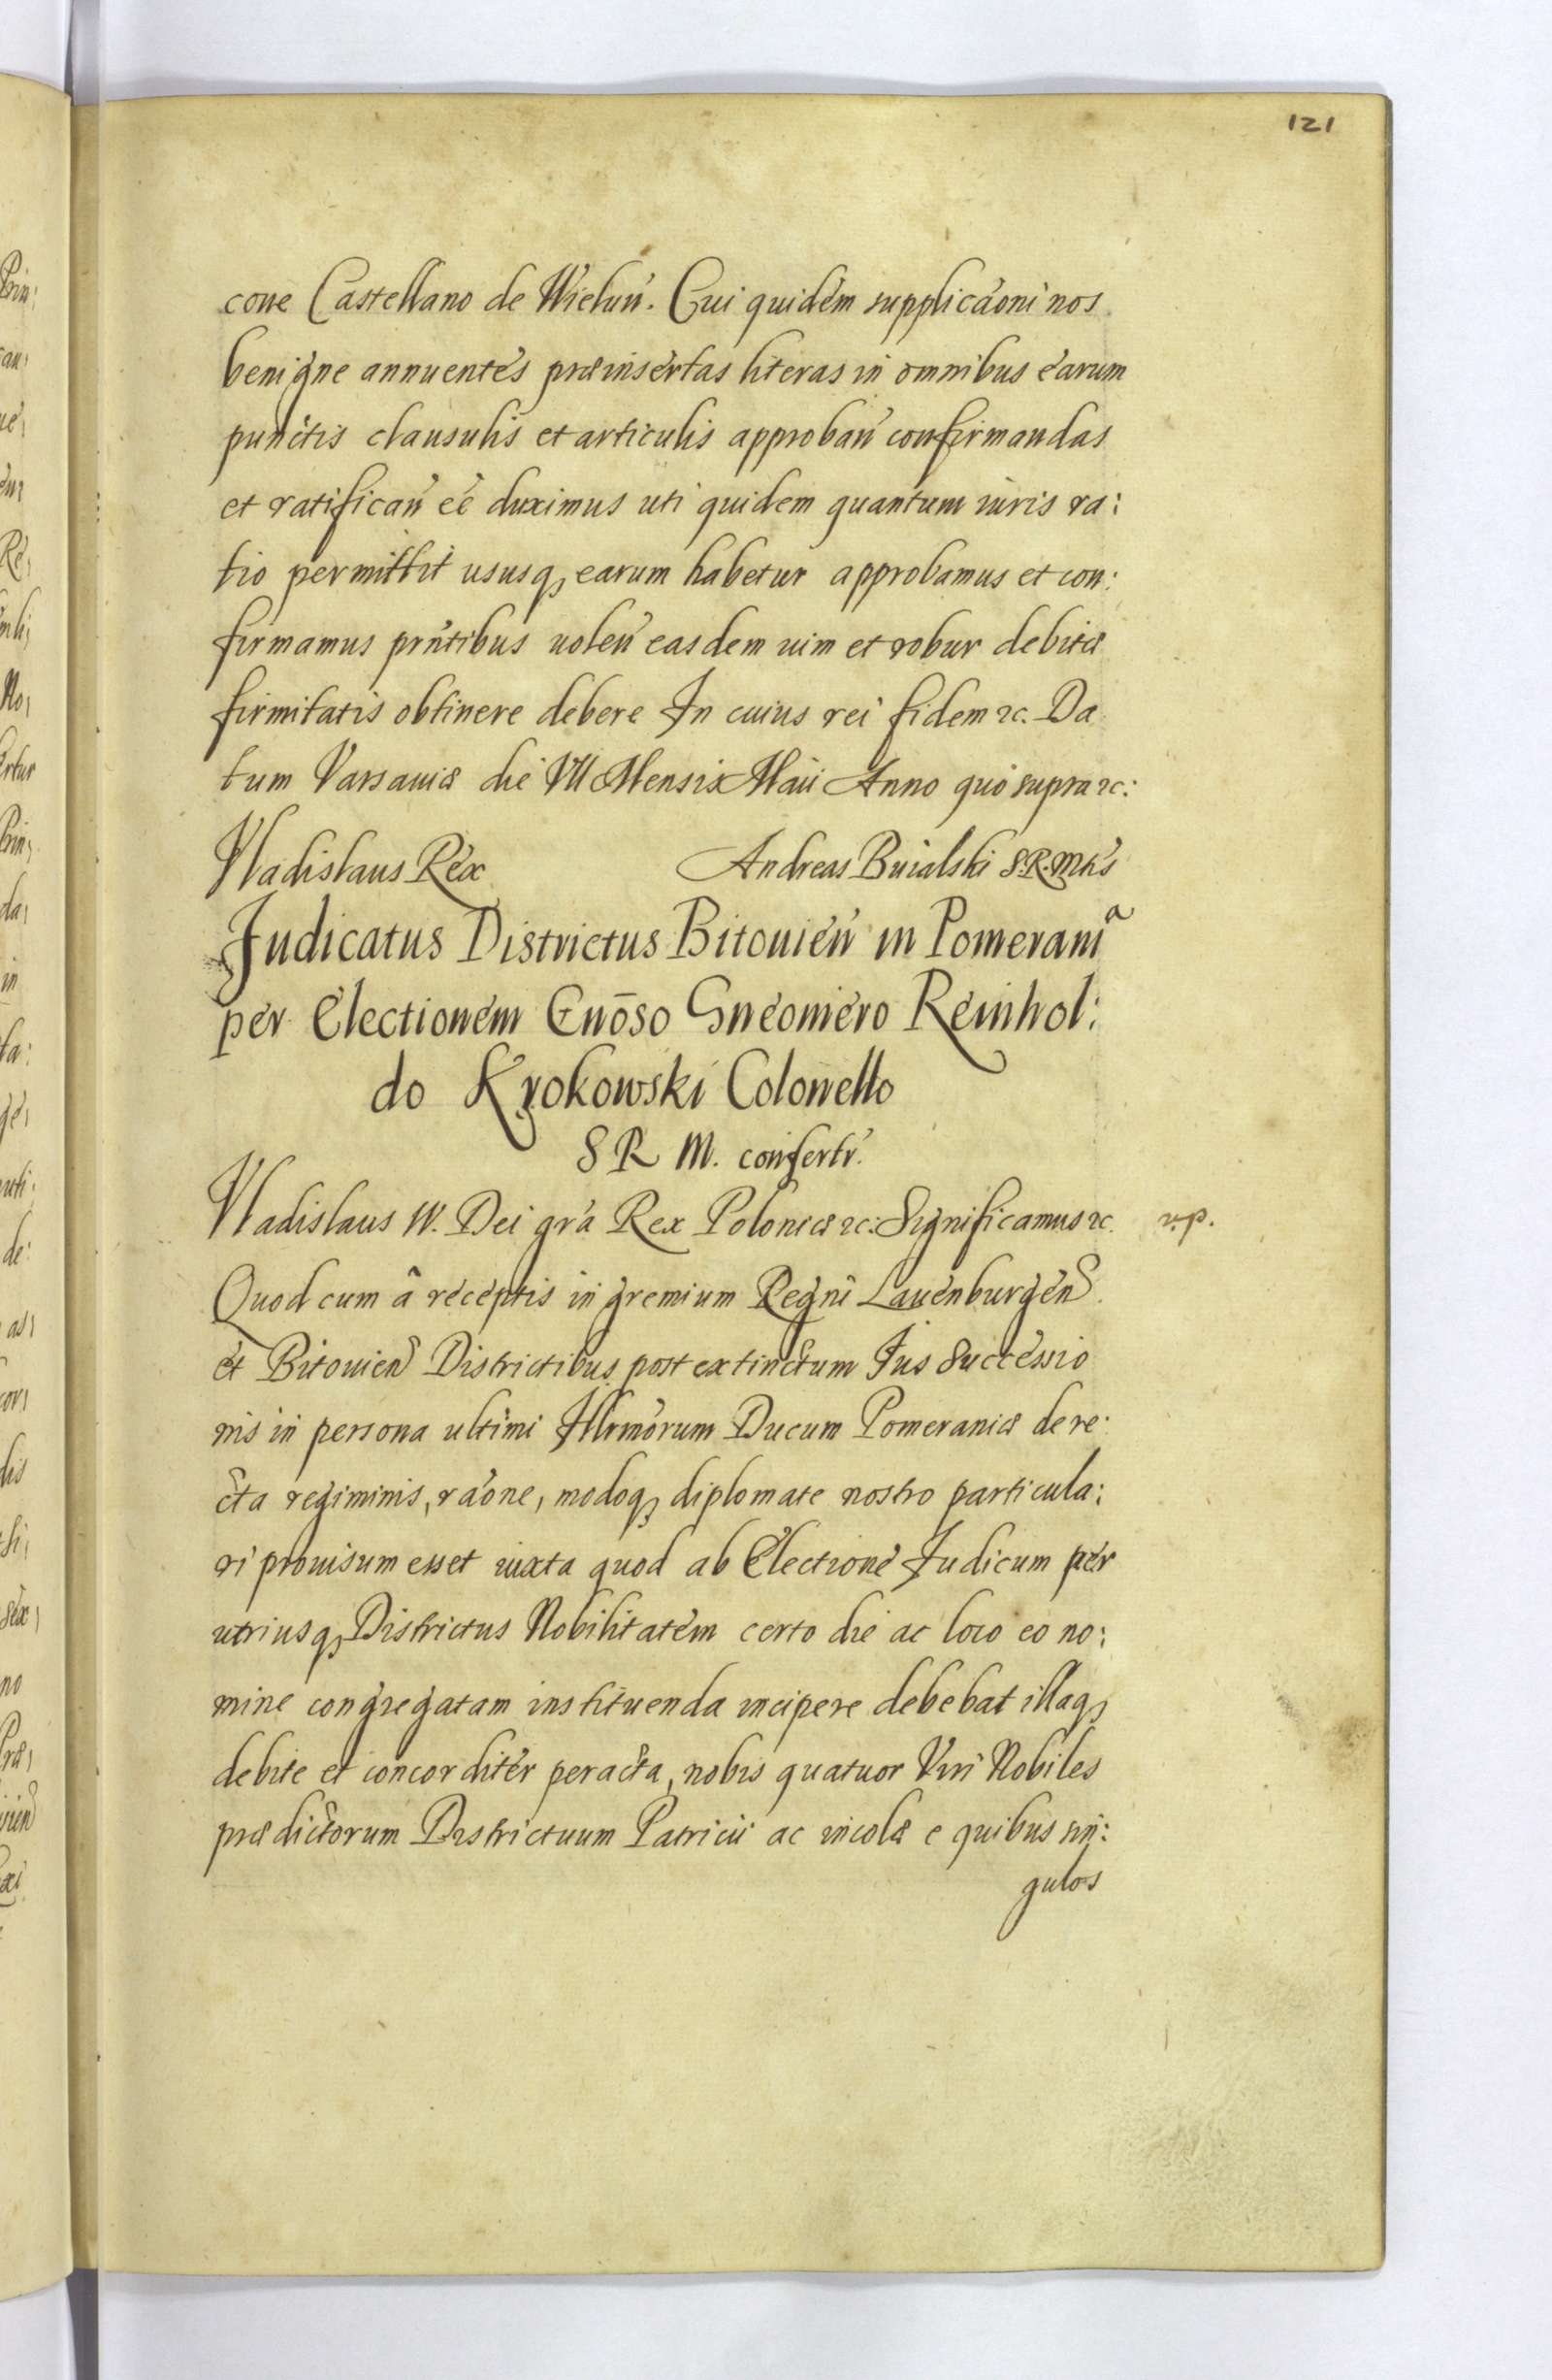 121
cone Castellano de Wieluń. Cui quidém supplicãoni nos
benigne annuentes præinsertas literas in omnibus earum
punctis clausulis et articulis approbań confirmandas
et ratificań eé duximus uti quidem quantum iuris ra:
tio permittit ususq, earum habetur approbamus et con:
firmamus prńtibus uoleń easdem uim et robur debitæ
firmitatis obtinere debere In cuius rei fidem &c. Da
tum Varsauiæ die VII Mensis Maii Anno quo supra &c:
Vladislaus Rex Andreas Buialski S.R.Mtis
Judicatus Districtus Bitouień in Pomerania
per Electionem Gnōso Gneomero Reinhol:
do Krokowski Colonello
S R M. confertr.
Vladislaus IV. Dei gra Rex Poloniæ &c: Significamus &c. v.p.
Quod cum â receptis in gremium Regni Lauenburgen
et Bitouien Districtibus post extinctum Jus Successio
nis in persona ultimi Illrmorum Ducum Pomeraniæ de re:
cta regiminis, raone, modoq, diplomate nostro particula:
ri prouisum esset iuxta quod ab Electione Judicum per
utriusq, Districtus Nobilitatem certo die ac loco eo no:
mine congregatam instituenda incipere debebat illaq,
debite et concorditer peracta, nobis quatuor Viri Nobiles
prædictorum Districtuum Patricii ac incolæ e quibus sin:
gulos